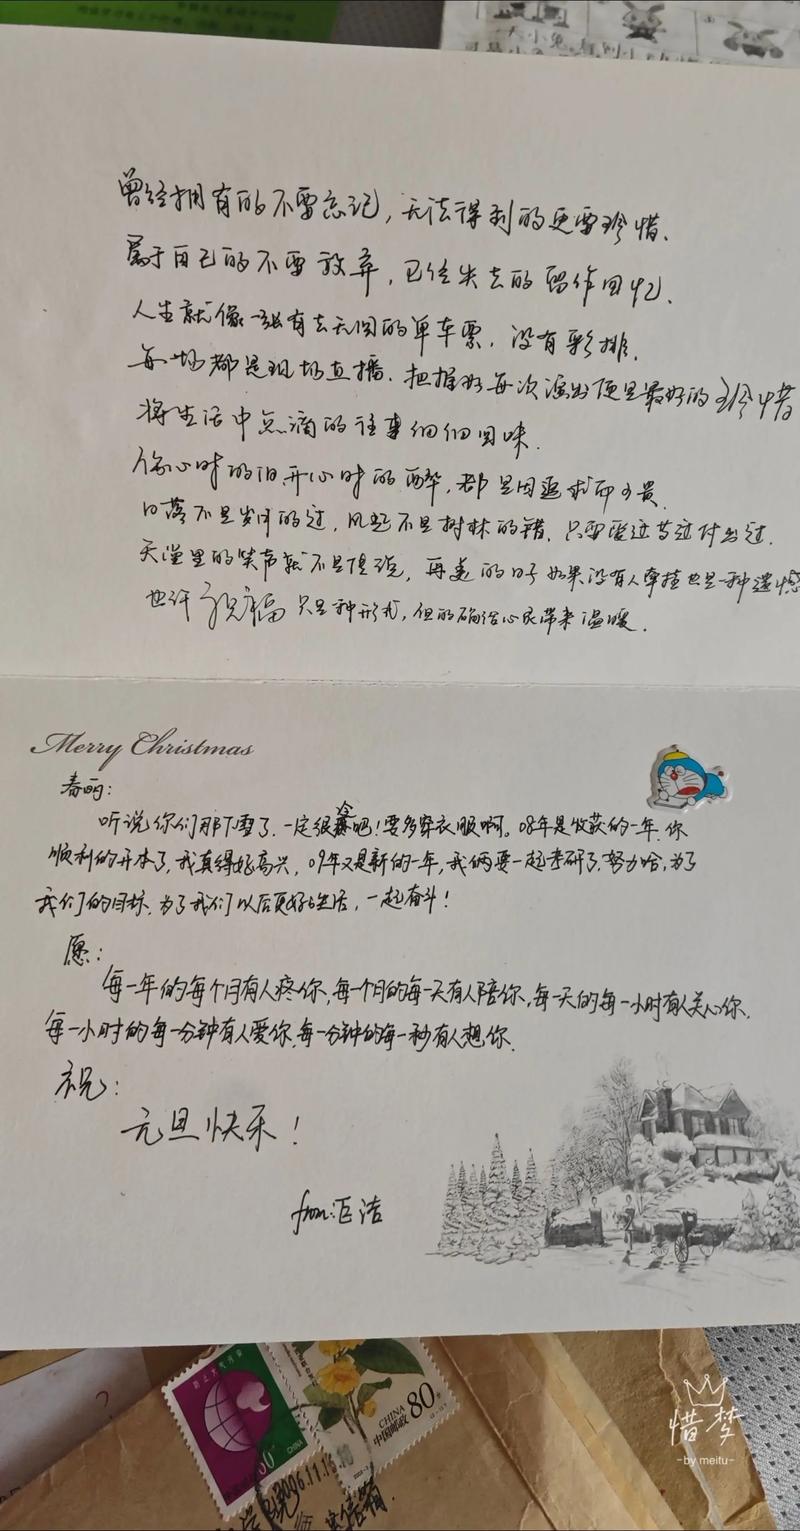 大小兔
曾经拥有的不要忘记,无法得到的更要珍惜、
属于自己的不要放弃,已经失去的留作回忆、
人生就像一张有去无回的单车票,没有彩排、
每一场都是现场直播、把握好每次演出便是最好的珍惜
将生活中点滴的往事细细回味、
伤心时的泪、开心时的醉,都是因追求而可贵、
日落不是岁月的过,风起不是树林的错、只要爱过等过付出过、
天堂里的笑声就不是传说,再美的日子如果没有人牵挂也是一种遗憾
也许祝福只是种形式,但的确给心灵带来温暖、
Merry Christmas
春丽:
听说你们那下雪了、一定很冷吧!要多穿衣服啊。08年是收获的一年、你
顺利的升本了,我真得好高兴,09年又是新的一年,我俩要一起考研了,努力哈,为了
我们的目标、为了我们以后更好的生活,一起奋斗!
愿:
每一年的每个月有人疼你,每一个月的每一天有人陪你,每一天的每一小时有人关心你、
每一小时的每一分钟有人爱你,每一分钟的每一秒有人想你、
祝:
元旦快乐!
from:巨洁
防止大气污染
CHINA
中国邮政
80
60
CHINA
惜梦
-by meitu-